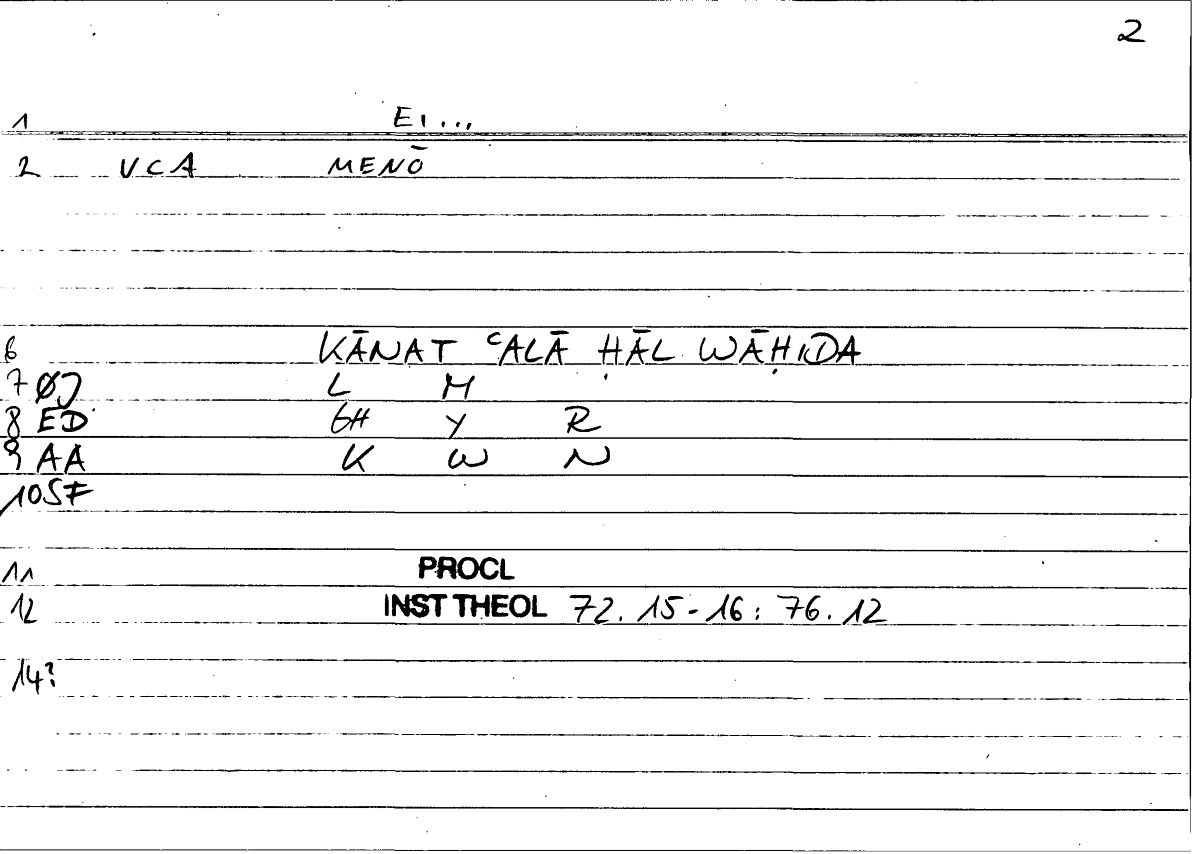 2
1 EI...
2 VCA MENŌ
6 KĀNAT ʿALĀ ḤĀL WĀḤIDA
7 ØJ L M
8 ED GH Y R
9 AA K W N
10 SF
11 PROCL
12 INST THEOL 72.15-16: 76.12
14?